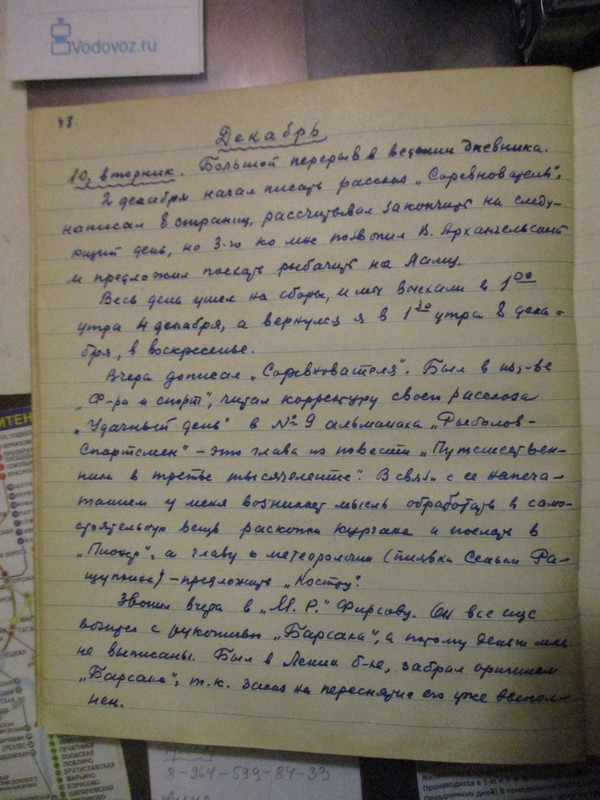 Vodovoz.ru
48.
Декабрь
10, вторник. Большой перерыв в ведении дневника.
2 декабря начал писать рассказ „Соревнователь",
написал 8 страниц, рассчитывал закончить на следу-
ющий день, но 3-го ко мне позвонил В. Архангельский
и предложил поехать рыбачить на Ламу.
Весь день ушел на сборы, и мы выехали в 1 00
утра 4 декабря, а вернулся я в 1 30 утра 8 дека-
бря, в воскресенье.
Вчера дописал „Соревнователя". Был в из-ве
„Ф-ра и спорт", читал корректуру своего рассказа
„Удачный день" в № 9 альманаха „Рыболов-
спортсмен" – это глава из повести „Путешествен-
ники в третье тысячелетие". В связи с ее напеча-
танием у меня возникает мысль обработать в само-
стоятельную вещь раскопки кургана и послать в
„Пионер", а главу о метеорологии (пиявка Семёна Ра-
щупкина) – предложить „Костру".
Звонил вчера в „М. Р." Фирсову. Он все еще
возится с рукописью „Барсака", а потому деньги мне
не выписаны. Был в Ленин. б-ке, забрал оригинал
„Барсака", т.к. заказ на переснятие его уже выпол-
нен.
8-964-599-84-33
ПЕЧАТНИКИ
ВОЛЖСКАЯ
ЛЮБЛИНО
БРАТИСЛАВСКАЯ
МАРЬИНО
БОРИСОВО